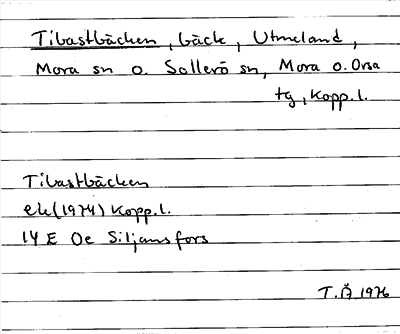 Tibastbäcken, bäck, Utmeland,
Mora sn o. Sollerö sn, Mora o. Orsa
tg, Kopp. l.
Tibastbäcken
ek (1974) Kopp. l.
14 E Oe Siljansfors
T. Å 1976